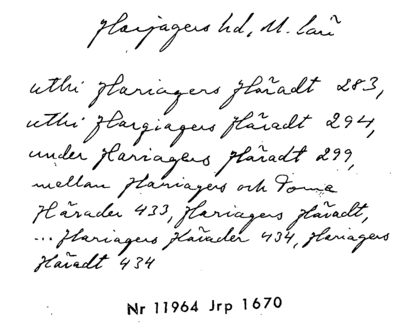 Harjagers hd, M. län
uthi Hariagers Häradt 283,
uthi Hargiagers Häradt 294,
under Hariagers Häradt 299,
mellan Hariagers och Torna
Härader 433, Hariagers Häradt,
... Hariagers Härader 434, Hariagers
Häradt 434
Nr 11964 Jrp 1670